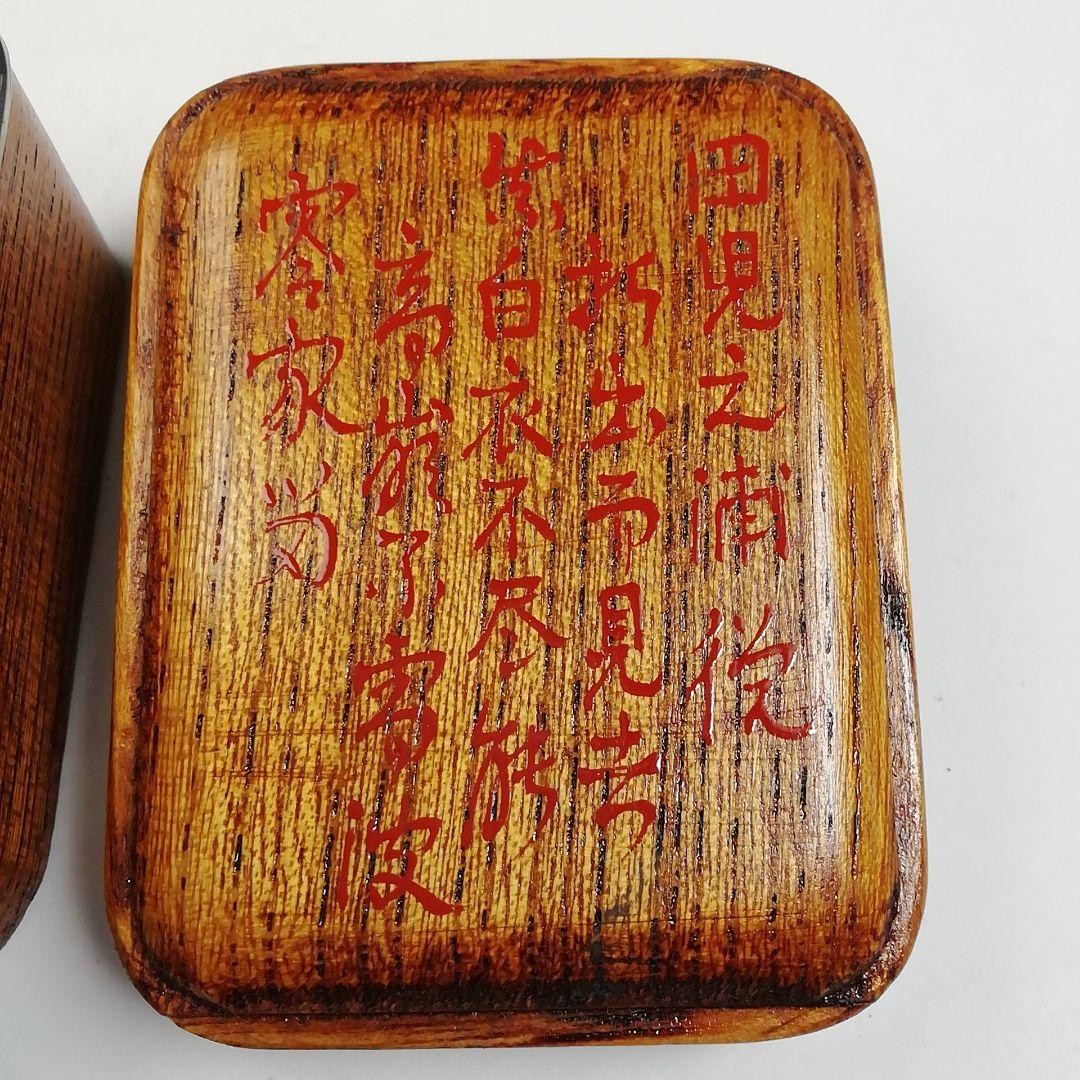 田児之浦従
打出而見者
真白衣不尽能
高嶺尓雪波
零家留